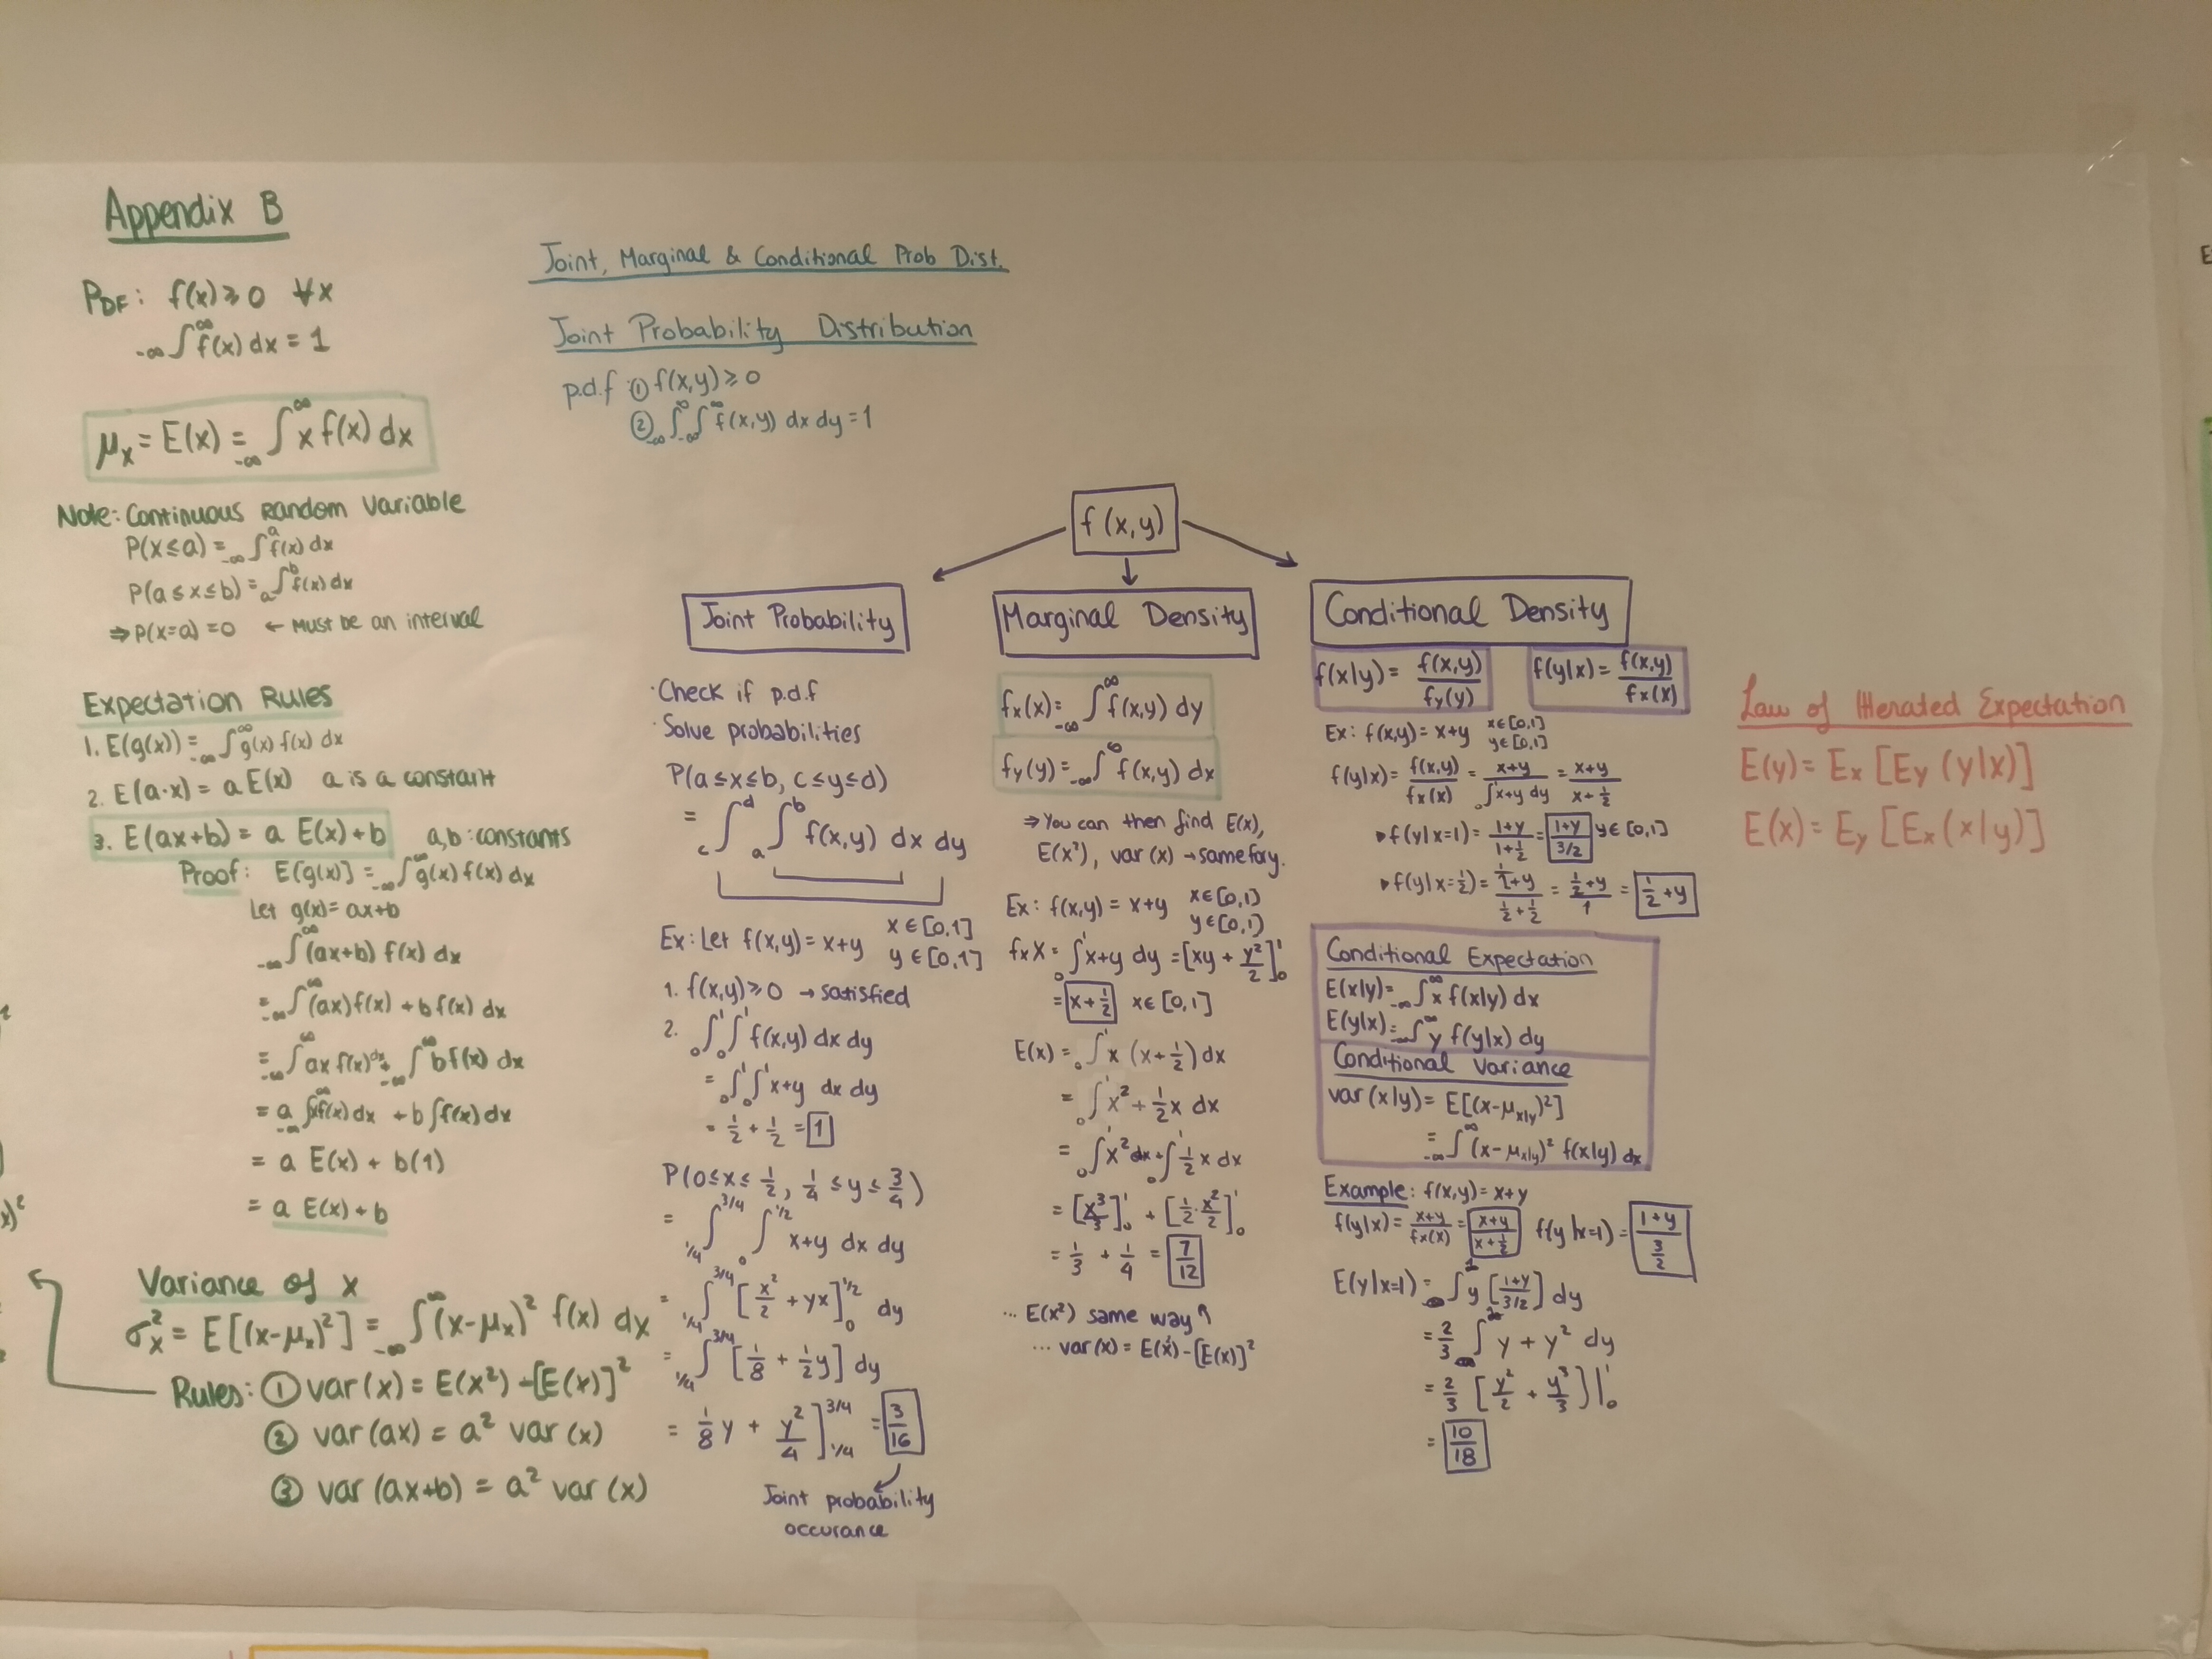 Appendix B
PDF: f(x) ≥ 0 ∀x
-∞∫^∞ f(x) dx = 1
μx = E(x) = -∞∫^∞ x f(x) dx
Note: Continuous Random Variable
P(x ≤ a) = -∞∫^a f(x) dx
P(a ≤ x ≤ b) = a∫^b f(x) dx
⇒ P(x=a) = 0 ← Must be an interval
Expectation Rules
1. E(g(x)) = -∞∫^∞ g(x) f(x) dx
2. E(a·x) = a E(x) a is a constant
3. E(ax+b) = a E(x) + b a,b: constants
Proof: E[g(x)] = -∞∫^∞ g(x) f(x) dx
Let g(x) = ax+b
-∞∫^∞ (ax+b) f(x) dx
= -∞∫^∞ (ax) f(x) + b f(x) dx
= -∞∫^∞ ax f(x) dx + -∞∫^∞ b f(x) dx
= a -∞∫^∞ x f(x) dx + b ∫ f(x) dx
= a E(x) + b(1)
= a E(x) + b
Variance of x
σx² = E[(x-μx)²] = -∞∫^∞ (x-μx)² f(x) dx
Rules: ① var(x) = E(x²) - [E(x)]²
② var(ax) = a² var(x)
③ var(ax+b) = a² var(x)
Joint, Marginal & Conditional Prob Dist.
Joint Probability Distribution
p.d.f ① f(x,y) ≥ 0
② -∞∫^∞ -∞∫^∞ f(x,y) dx dy = 1
f(x,y)
Joint Probability
·Check if p.d.f
·Solve probabilities
P(a ≤ x ≤ b, c ≤ y ≤ d)
= c∫^d a∫^b f(x,y) dx dy
Ex: Let f(x,y) = x+y x ∈ [0,1]
y ∈ [0,1]
1. f(x,y) ≥ 0 → satisfied
2. 0∫^1 0∫^1 f(x,y) dx dy
= 0∫^1 0∫^1 x+y dx dy
= 1/2 + 1/2 = 1
P(0 ≤ x ≤ 1/2, 1/4 ≤ y ≤ 3/4)
= 1/4∫^3/4 0∫^1/2 x+y dx dy
= 1/4∫^3/4 [x²/2 + yx]0^1/2 dy
= 1/4∫^3/4 [1/8 + 1/2 y] dy
= 1/8 y + y²/4 ]1/4^3/4 = 3/16
Joint probability
occurance
Marginal Density
fx(x) = -∞∫^∞ f(x,y) dy
fy(y) = -∞∫^∞ f(x,y) dx
⇒ You can then find E(x),
E(x²), var(x) → same for y.
Ex: f(x,y) = x+y x∈[0,1)
y∈[0,1)
fxX = 0∫^1 x+y dy = [xy + y²/2]0^1
= x + 1/2 x∈[0,1]
E(x) = 0∫^1 x (x + 1/2) dx
= 0∫^1 x² + 1/2 x dx
= 0∫^1 x² dx + 0∫^1 1/2 x dx
= [x³/3]0^1 + [1/2 · x²/2]0^1
= 1/3 + 1/4 = 7/12
... E(x²) same way
... var(x) = E(x²) - [E(x)]²
Conditional Density
f(x|y) = f(x,y)/fy(y) f(y|x) = f(x,y)/fx(x)
Ex: f(x,y) = x+y x∈[0,1]
y∈[0,1]
f(y|x) = f(x,y)/fx(x) = x+y/0∫^1 x+y dy = x+y/x+1/2
▸ f(y|x=1) = 1+y/1+1/2 = 1+y/3/2 y∈[0,1]
▸ f(y|x=1/2) = 1/2+y/1/2+1/2 = 1/2+y/1 = 1/2 + y
Conditional Expectation
E(x|y) = -∞∫^∞ x f(x|y) dx
E(y|x) = -∞∫^∞ y f(y|x) dy
Conditional Variance
var(x|y) = E[(x-μx|y)²]
= -∞∫^∞ (x-μx|y)² f(x|y) dx
Example: f(x,y) = x+y
f(y|x) = x+y/fx(x) = x+y/x+1/2 f(y|x=1) = 1+y/3/2
E(y|x=1) = ∫ y [1+y/3/2] dy
= 2/3 ∫ y + y² dy
= 2/3 [y²/2 + y³/3]|0^1
= 10/18
Law of Iterated Expectation
E(y) = Ex [Ey (y|x)]
E(x) = Ey [Ex (x|y)]